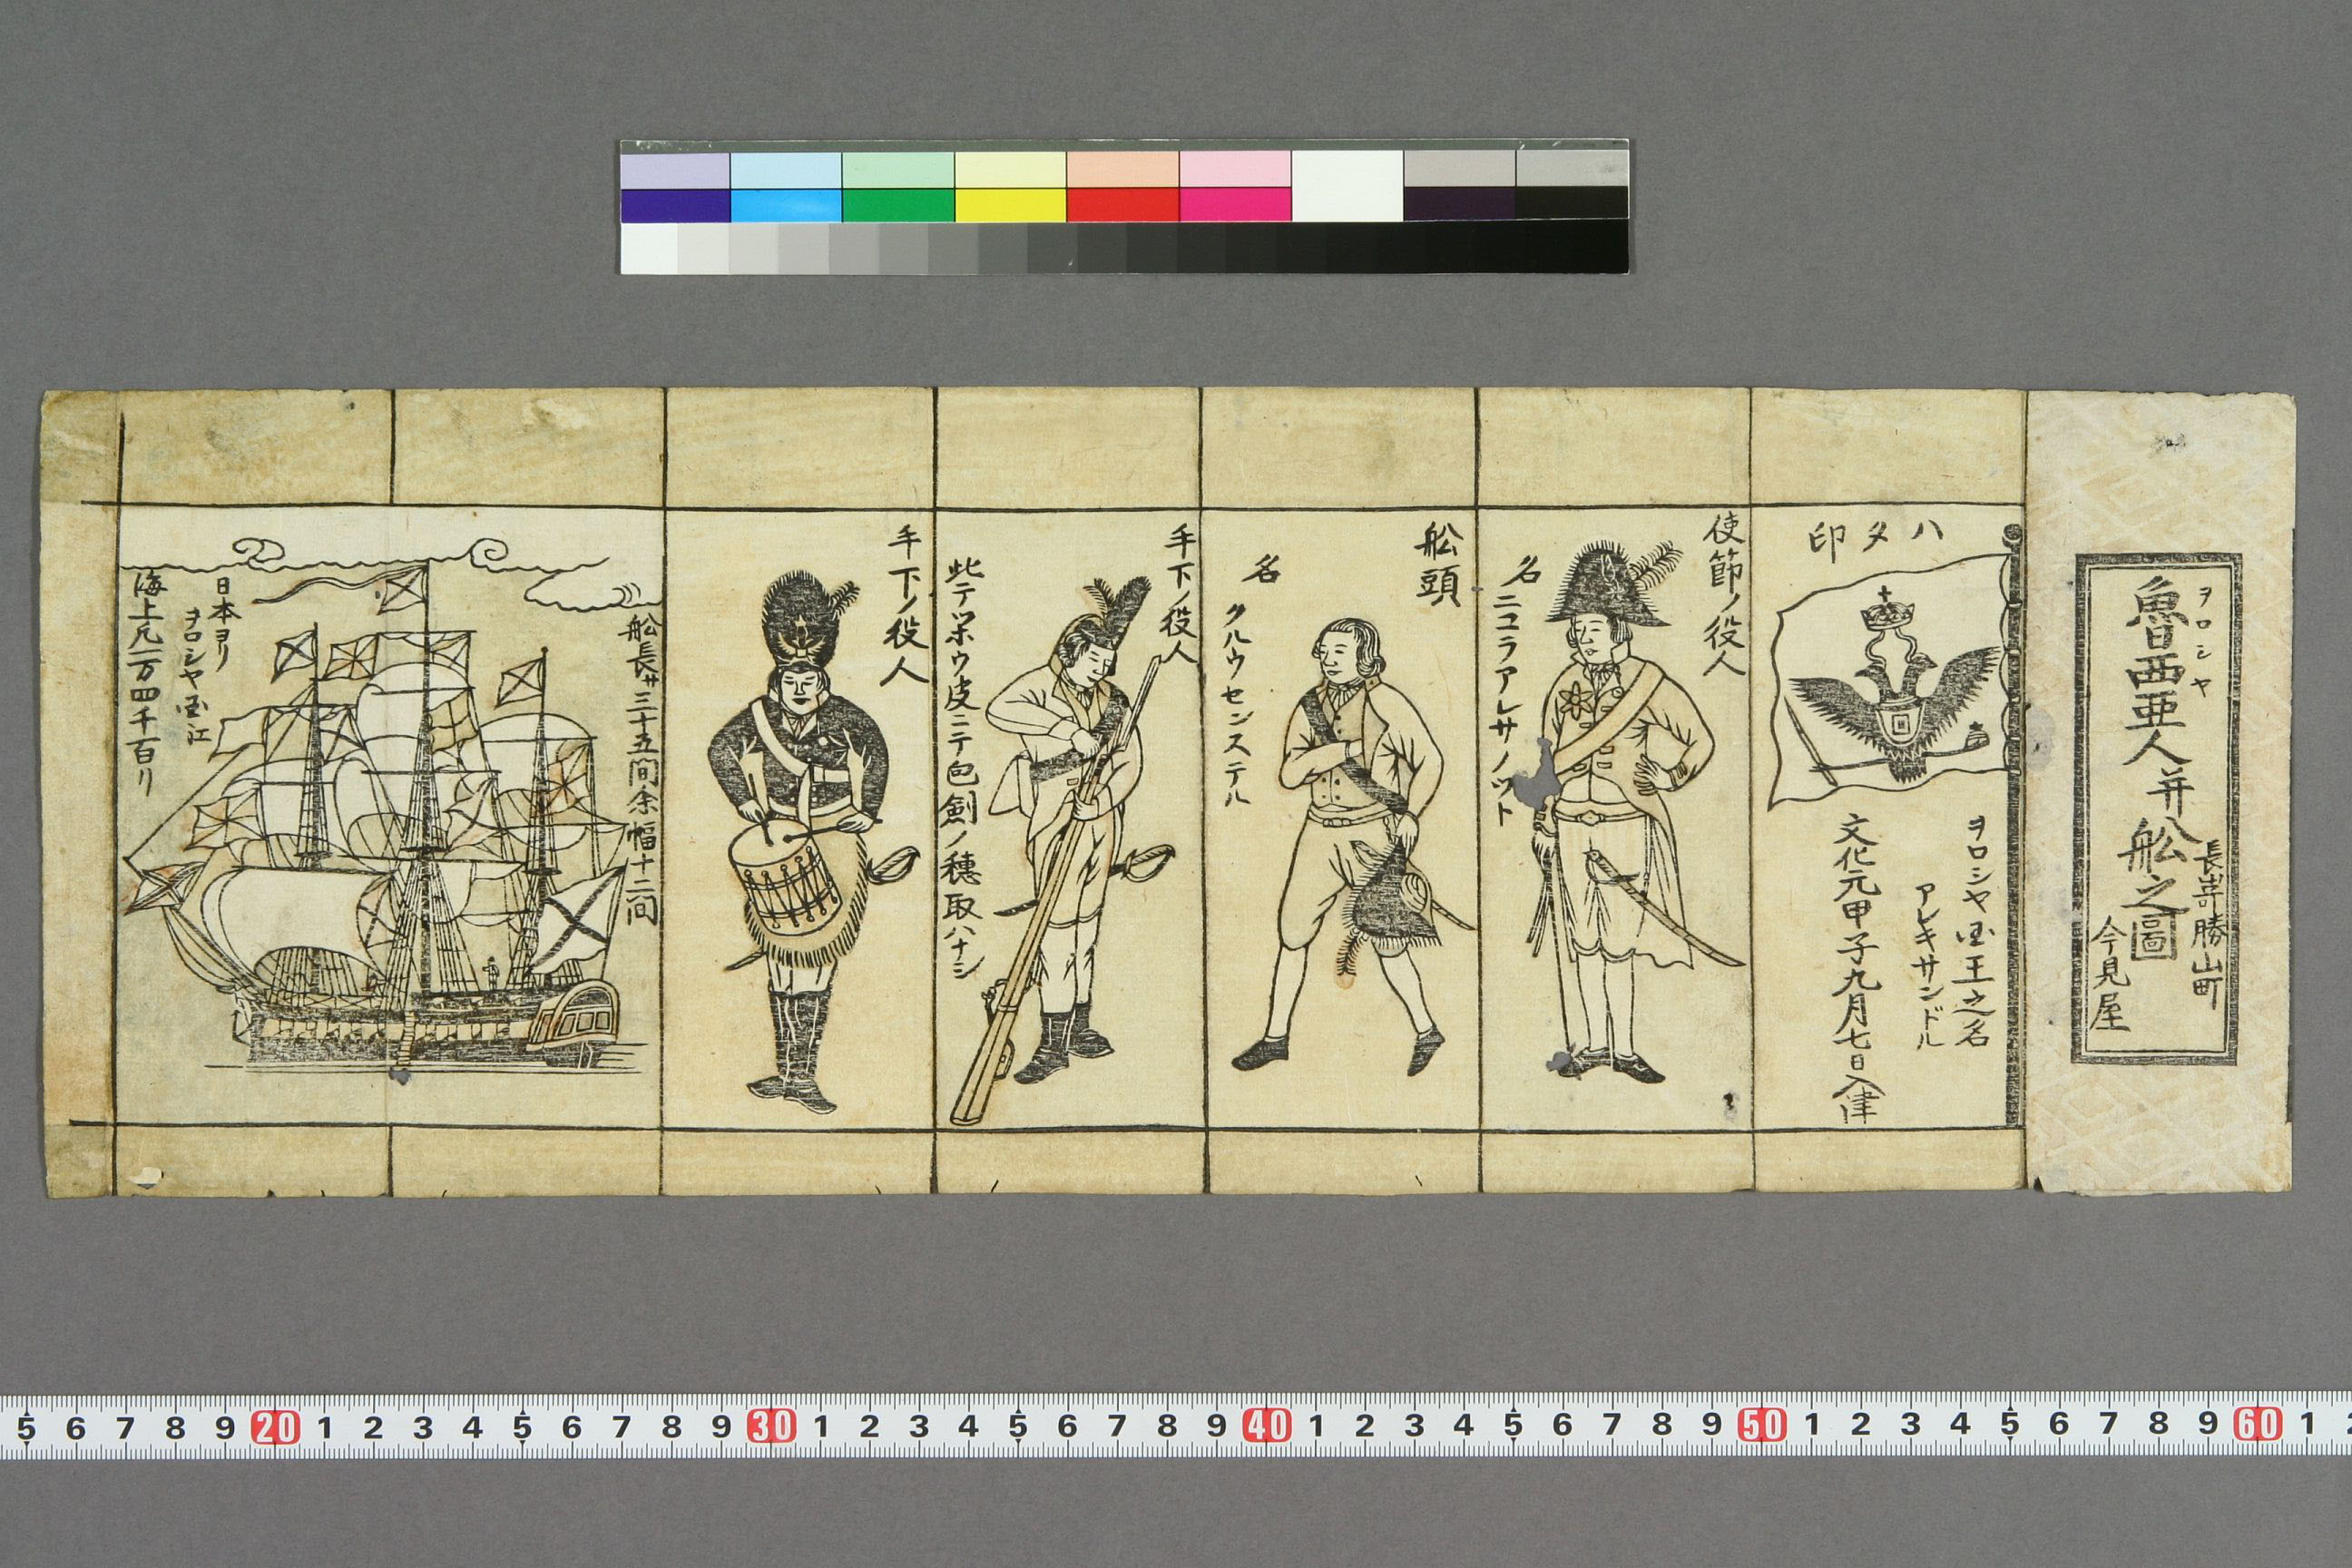 ヲロシヤ
魯西亜人并舩之圖
長嵜勝山町
今見屋
ハタ印
ヲロシヤ国王之名
アレキサンドル
文化元甲子九月七日入津
使節ノ役人
名
ニコラアレサノツト
舩頭
名
クルウセンステル
手下ノ役人
此テツホウ皮ニテ包劍ノ穂取ハナシ
手下ノ役人
舩長サ三十五間余幅十二間
日本ヨリ
ヲロシヤ国江
海上凡一万四千百リ
5 6 7 8 9 20 1 2 3 4 5 6 7 8 9 30 1 2 3 4 5 6 7 8 9 40 1 2 3 4 5 6 7 8 9 50 1 2 3 4 5 6 7 8 9 60 1